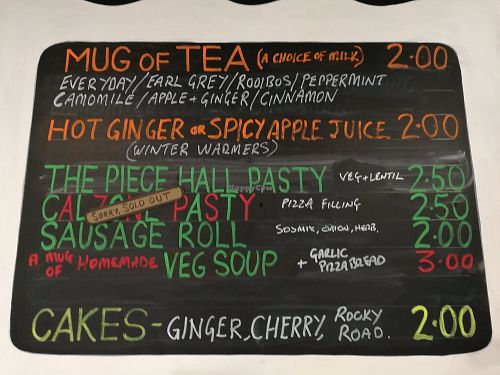 MUG OF TEA (A CHOICE OF MILK) 2.00
EVERYDAY/EARL GREY/ROOIBOS/PEPPERMINT
CAMOMILE/APPLE+GINGER/CINNAMON
HOT GINGER OR SPICY APPLE JUICE 2.00
(WINTER WARMERS)
THE PIECE HALL PASTY VEG+LENTIL 2.50
PASTY PIZZA FILLING 2.50
SORRY, SOLD OUT
SAUSAGE ROLL SOSMIX, ONION, HERB, 2.00
A MUG OF HOMEMADE VEG SOUP + GARLIC PIZZA BREAD 3.00
CAKES- GINGER, CHERRY, ROCKY ROAD. 2.00
HappyCow